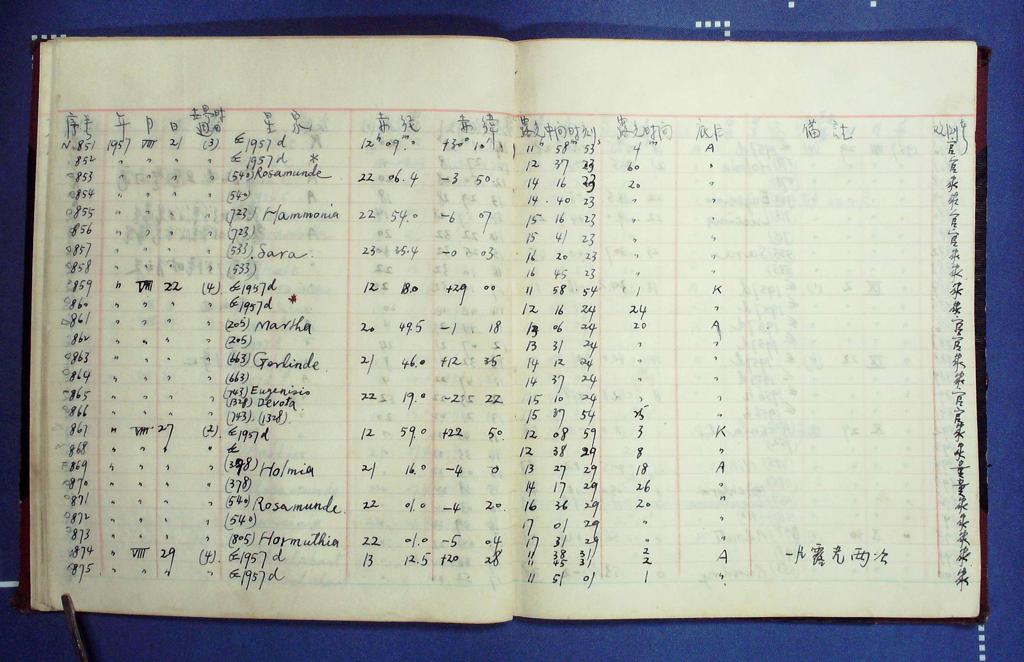 序号 年 月 日 世界时 星象 赤经 赤纬 露光中间时刻 露光时间 底片 备註
N.851 1957 VIII 21 (3) ϵ1957d 12ʰ 09.ᵐ +30° 10' 11ʰ 58ᵐ 53ˢ 4ᵐ A
852 " " " " ϵ1957d * 12 37 23 60 "
853 " " " " (540) Rosamunde 22 06.4 -3 50. 14 16 23 20 "
854 " " " " (540) 14 40 23 " "
855 " " " " (723) Hammonia 22 54.0 -6 07 15 16 23 " "
856 " " " " (723) 15 41 23 " "
857 " " " " (533) Sara 23 35.4 -0 03 16 20 23 " "
858 " " " " (533) 16 45 23 " "
859 " VIII 22 (4) ϵ1957d 12 18.0 +29 00 11 58 54 1 K
860 " " " " ϵ1957d * 12 16 24 24 "
861 " " " " (205) Martha 20 49.5 -1 18 13 06 24 20 A
862 " " " " (205) 13 31 24 " "
863 " " " " (663) Gerlinde 21 46.0 +12 35 14 12 24 " "
864 " " " " (663) 14 37 24 " "
865 " " " " (743) Eugenisis (1328) Devota 22 19.0 -22 22 15 10 24 " "
866 " " " " (743). (1328). 15 37 54 25 "
867 " VIII 27 (2) ϵ1957d 12 59.0 +22 50 12 08 59 3 K
868 " " " " " 12 38 29 8 "
869 " " " " (378) Holmia 21 16.0 -4 0 13 27 29 18 A
870 " " " " (378) 14 17 29 26 "
871 " " " " (540) Rosamunde 22 01.0 -4 20. 16 36 29 20 "
872 " " " " (540) 17 01 29 " "
873 " " " " (805) Hormuthia 22 01.0 -5 04 17 31 29 " "
874 " VIII 29 (4) ϵ1957d 13 12.5 +20 28 11 38 31 2 A 一片露光两次
11 45 31 2
875 " " " " ϵ1957d 11 51 01 1 "